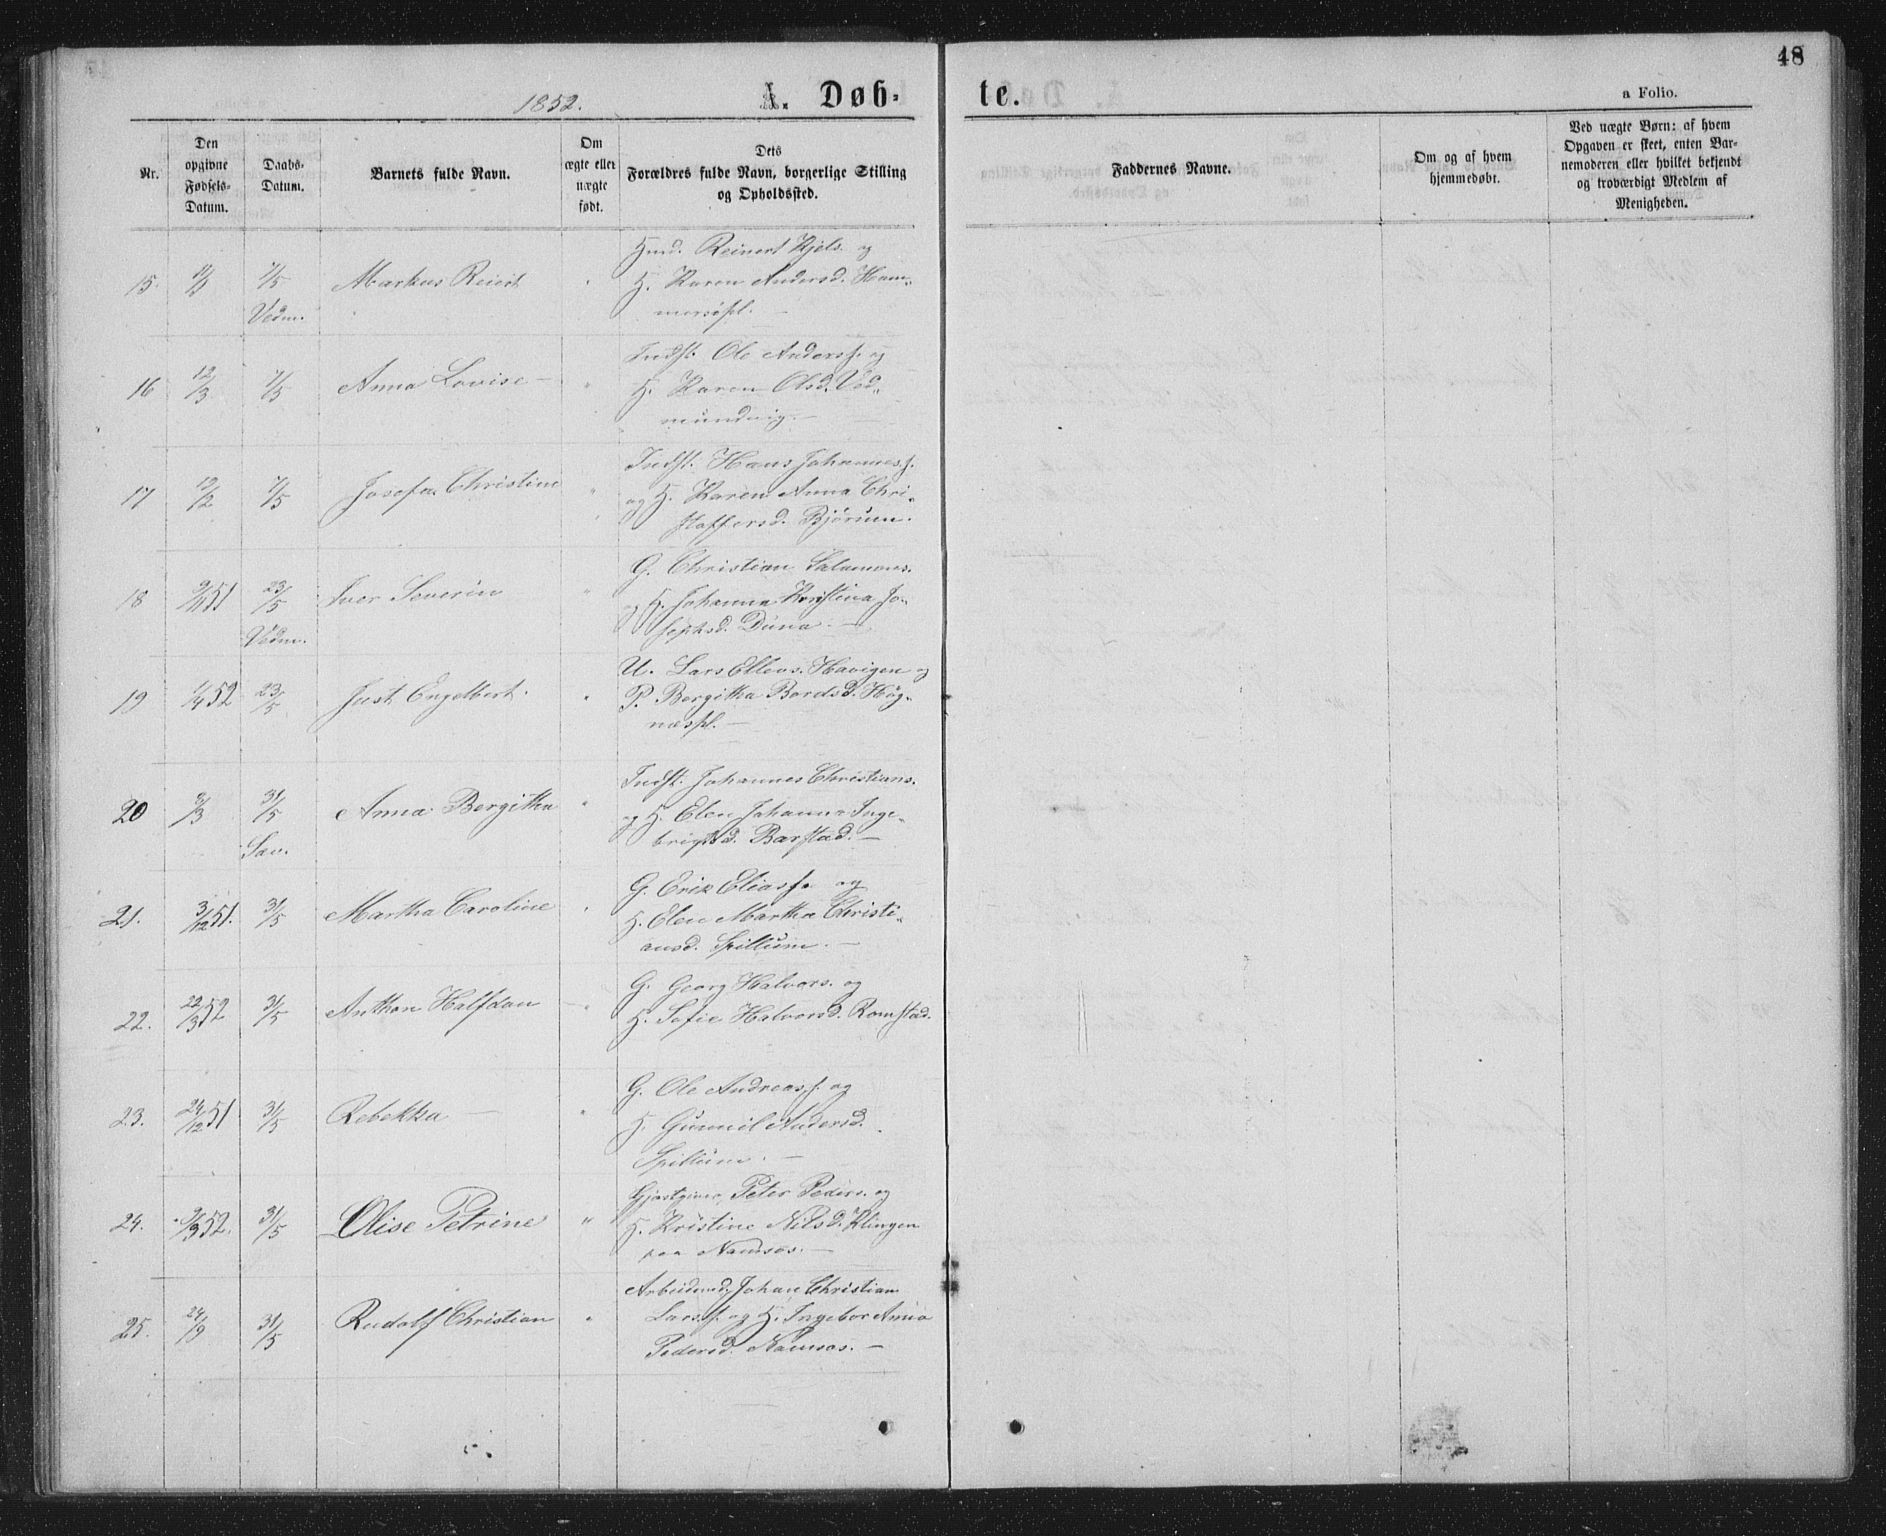 48
1852.
A. Døb-
te.
a Folio.
Nr.
Den
opgivne
Fødsels-
Datum.
Daabs-
Datum.
Barnets fulde Navn.
Om
ægte eller
uægte
født.
Dets
Forældres fulde Navn, borgerlige Stilling
og Opholdssted.
Faddernes Navne.
Om og af hvem
hjemmedøbt.
Ved uægte Børn: af hvem
Opgaven er skeet, enten Bar-
nemoderen eller hvilket bekjendt
og troværdigt Medlem af
Menigheden.
Hmd. Reinert Kjels. og
15. 7/5 Markus Reiert " H. Karen Andersd. Ham-
Vedm. mersøpl. —
Indst. Ole Anderss. og
16 12/3 7/5 Anna Lovise — " H. Karen Olsd. Ved-
mundvig. —
Indst. Hans Johanness.
17 12/2 7/5 Josefa Christine " og H. Karen Anna Chri-
stoffersd. Bjørum.
G. Christian Salamons.
18 9/11 51 23/5 Iver Severin " og H. Johanna Kristina Jo-
Vedm. sephsd. Duna. —
U. Lars Ellevs. Havigen og
19 1/4 52 23/5 Just Engelbert. " P. Bergitha Bardsd. Høg-
næspl. —
Indst. Johannes Christians.
20 2/3 31/5 Anna Bergitha " og H. Elen Johanna Inge-
Sæv. brigtsd. Barstad. —
G. Erik Eliass. og
21. 3/12 51. 31/5 Martha Caroline " H. Elen Martha Christi-
ansd. Spillum. —
G. Georg Halvors. og
22. 22/3 52 31/5 Anthon Halfdan — " H. Sofie Halvorsd. Romstad.
G. Ole Andreass. og
23. 24/12 51 31/5 Rebekka — " H. Gunnil Andersd.
Spillum. —
Gjæstgiver Peter Peders. og
24. 9/3 52. 31/5 Olise Petrine " H. Kristine Nilsd. Klingen
paa Namsos. —
Arbeidsmd. Johan Christian
25. 24/9 31/5 Rudolf Christian " Larss. og H. Ingebor Anna
Pedersd. Namsos. —